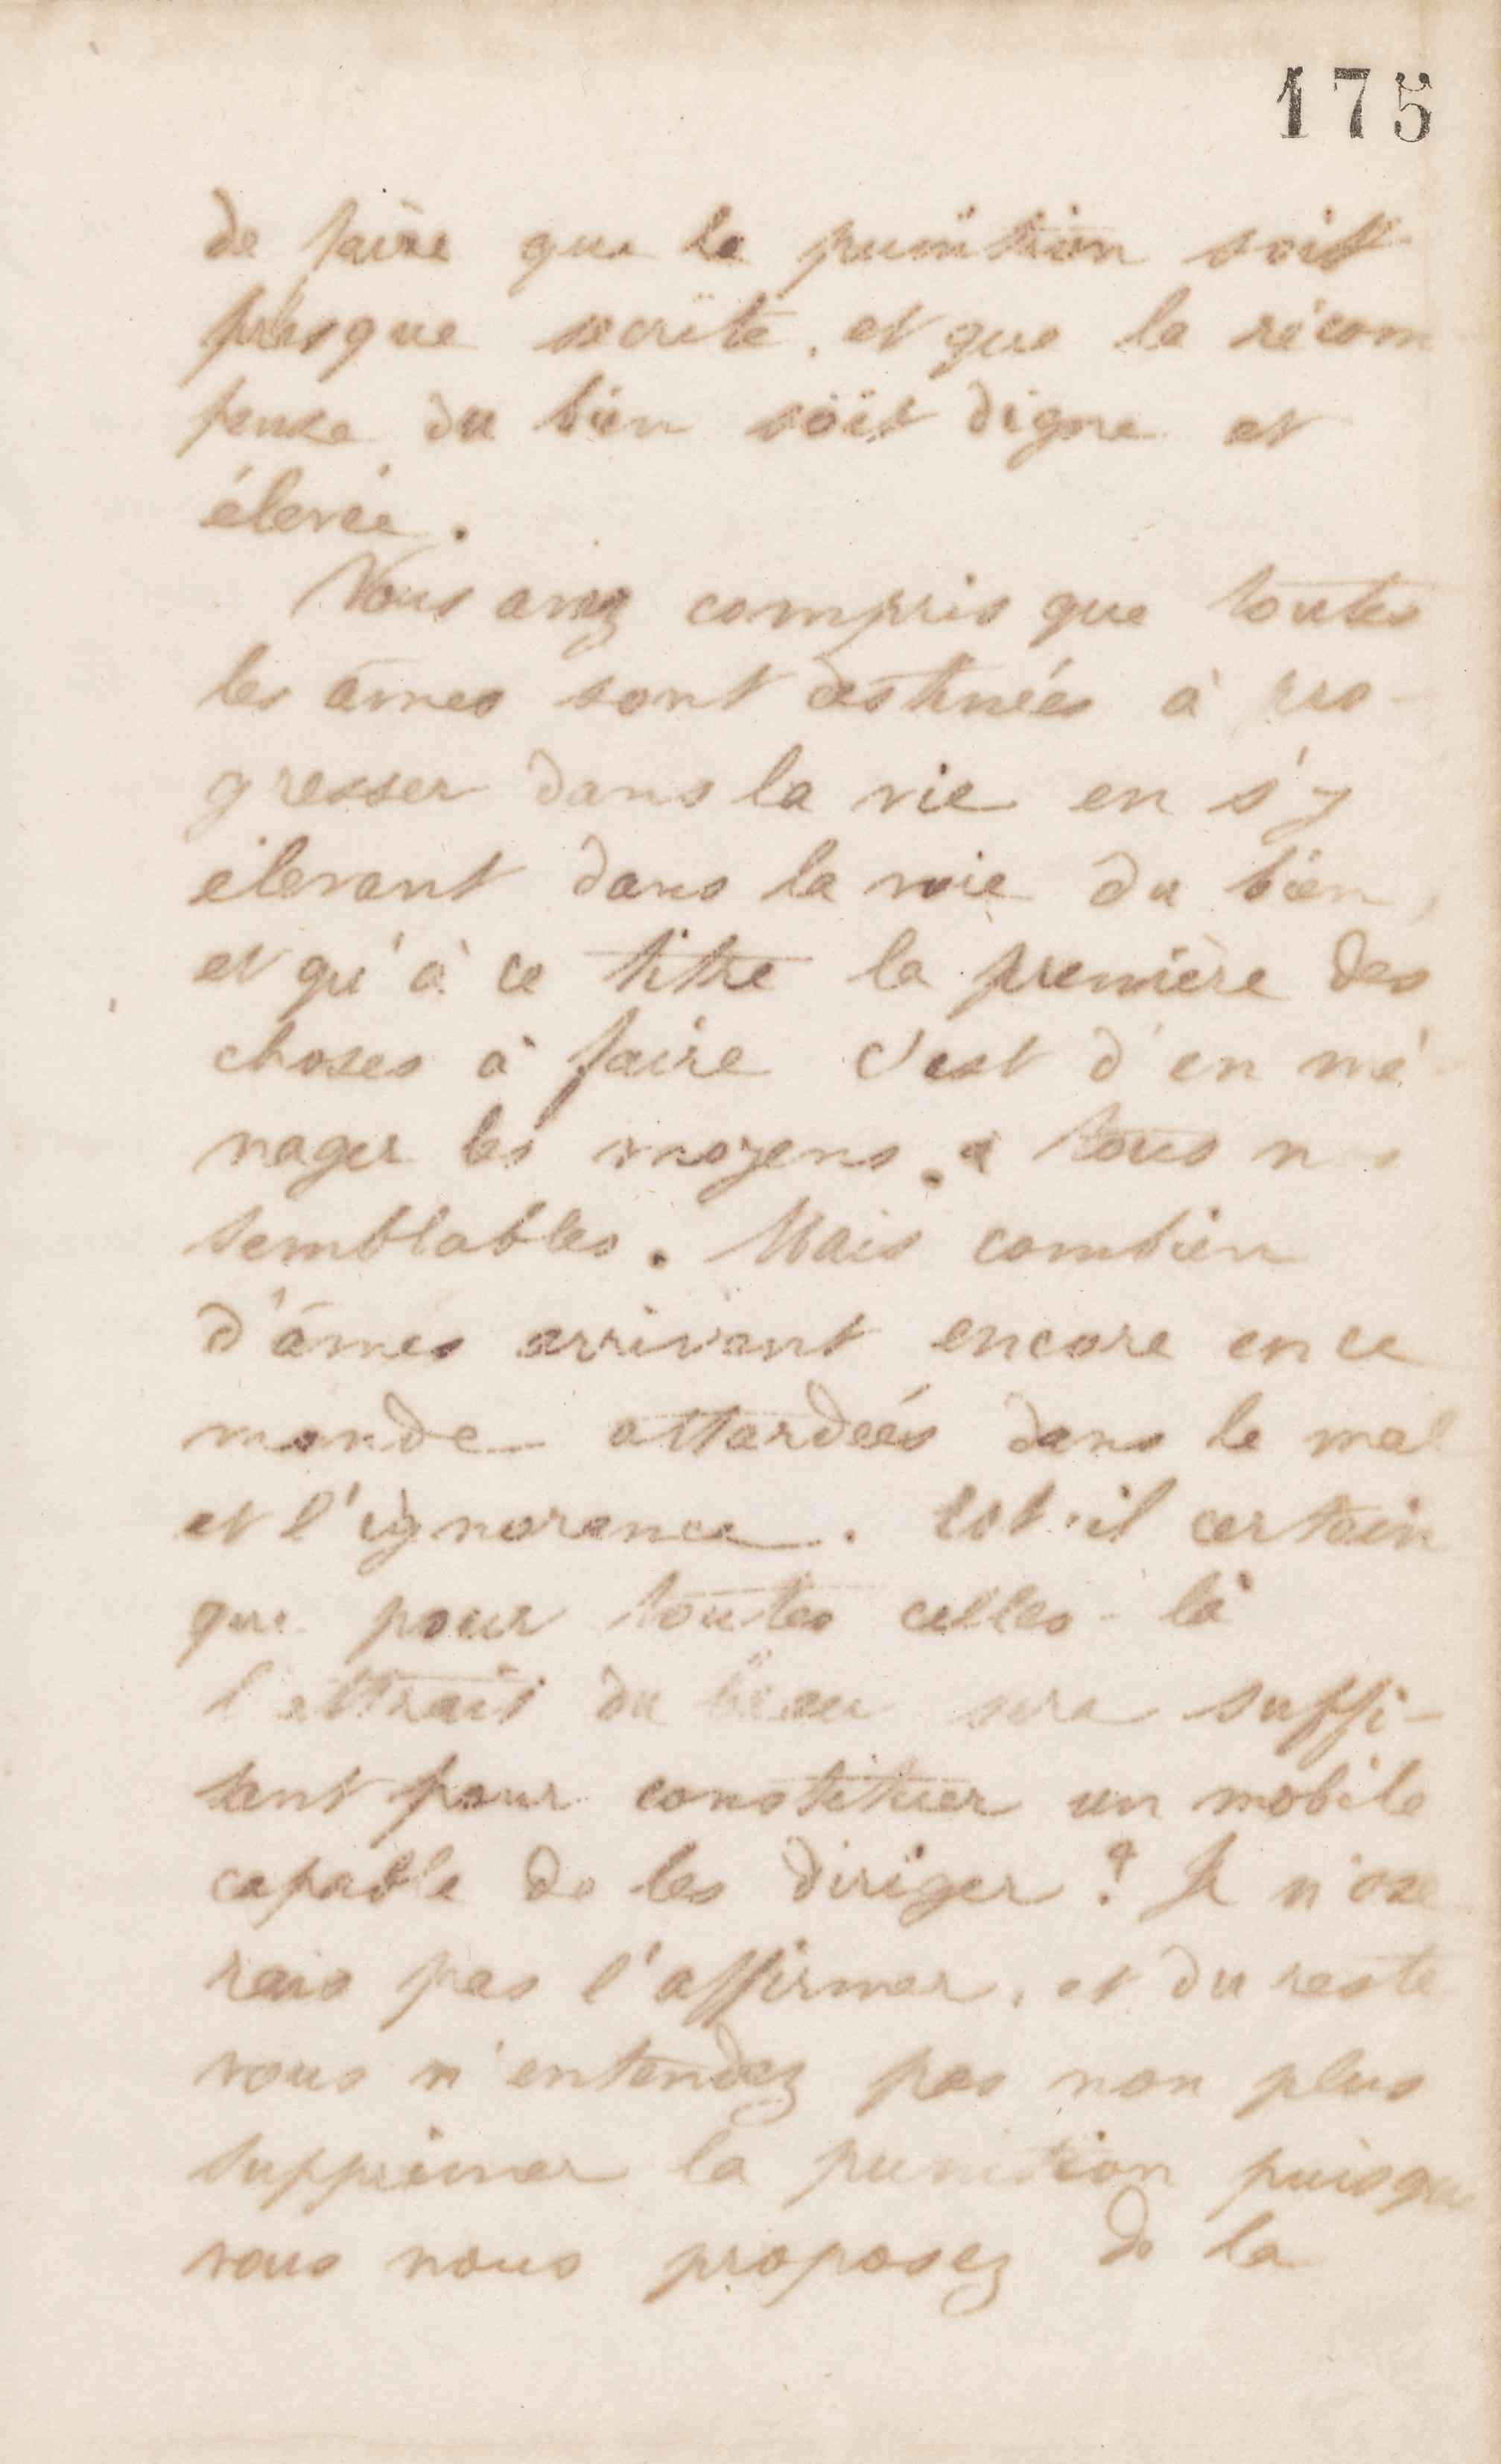 175
de faire que la punition soit
presque secrète, et que la récom
pense du bien soit digne et
élevée.
Vous avez compris que toutes
les âmes sont destinées à pro-
gresser dans la vie en s'y
élevant dans la voie du bien,
et qu'à ce titre la première des
choses à faire c'est d'en mé
nager les moyens à tous nos
semblables. Mais combien
d'âmes arrivent encore en ce
monde attardées dans le mal
et l'ignorance. Est-il certain
que pour toutes celles-là
l'attrait du beau sera suffi-
sant pour constituer un mobile
capable de les diriger? Je n'ose
rais pas l'affirmer, et du reste
vous n'entendez pas non plus
supprimer la punition puisque
vous nous proposez de la